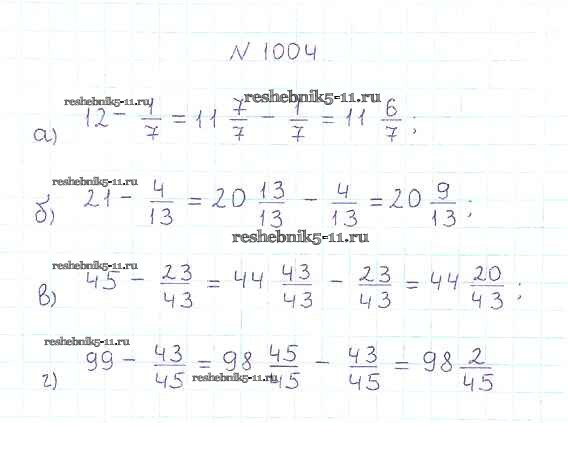 N 1004
reshebnik5-11.ru reshebnik5-11.ru
а) 12 - 1/7 = 11 7/7 - 1/7 = 11 6/7;
reshebnik5-11.ru
б) 21 - 4/13 = 20 13/13 - 4/13 = 20 9/13;
reshebnik5-11.ru
reshebnik5-11.ru
в) 45 - 23/43 = 44 43/43 - 23/43 = 44 20/43;
reshebnik5-11.ru
г) 99 - 43/45 = 98 45/45 - 43/45 = 98 2/45
reshebnik5-11.ru